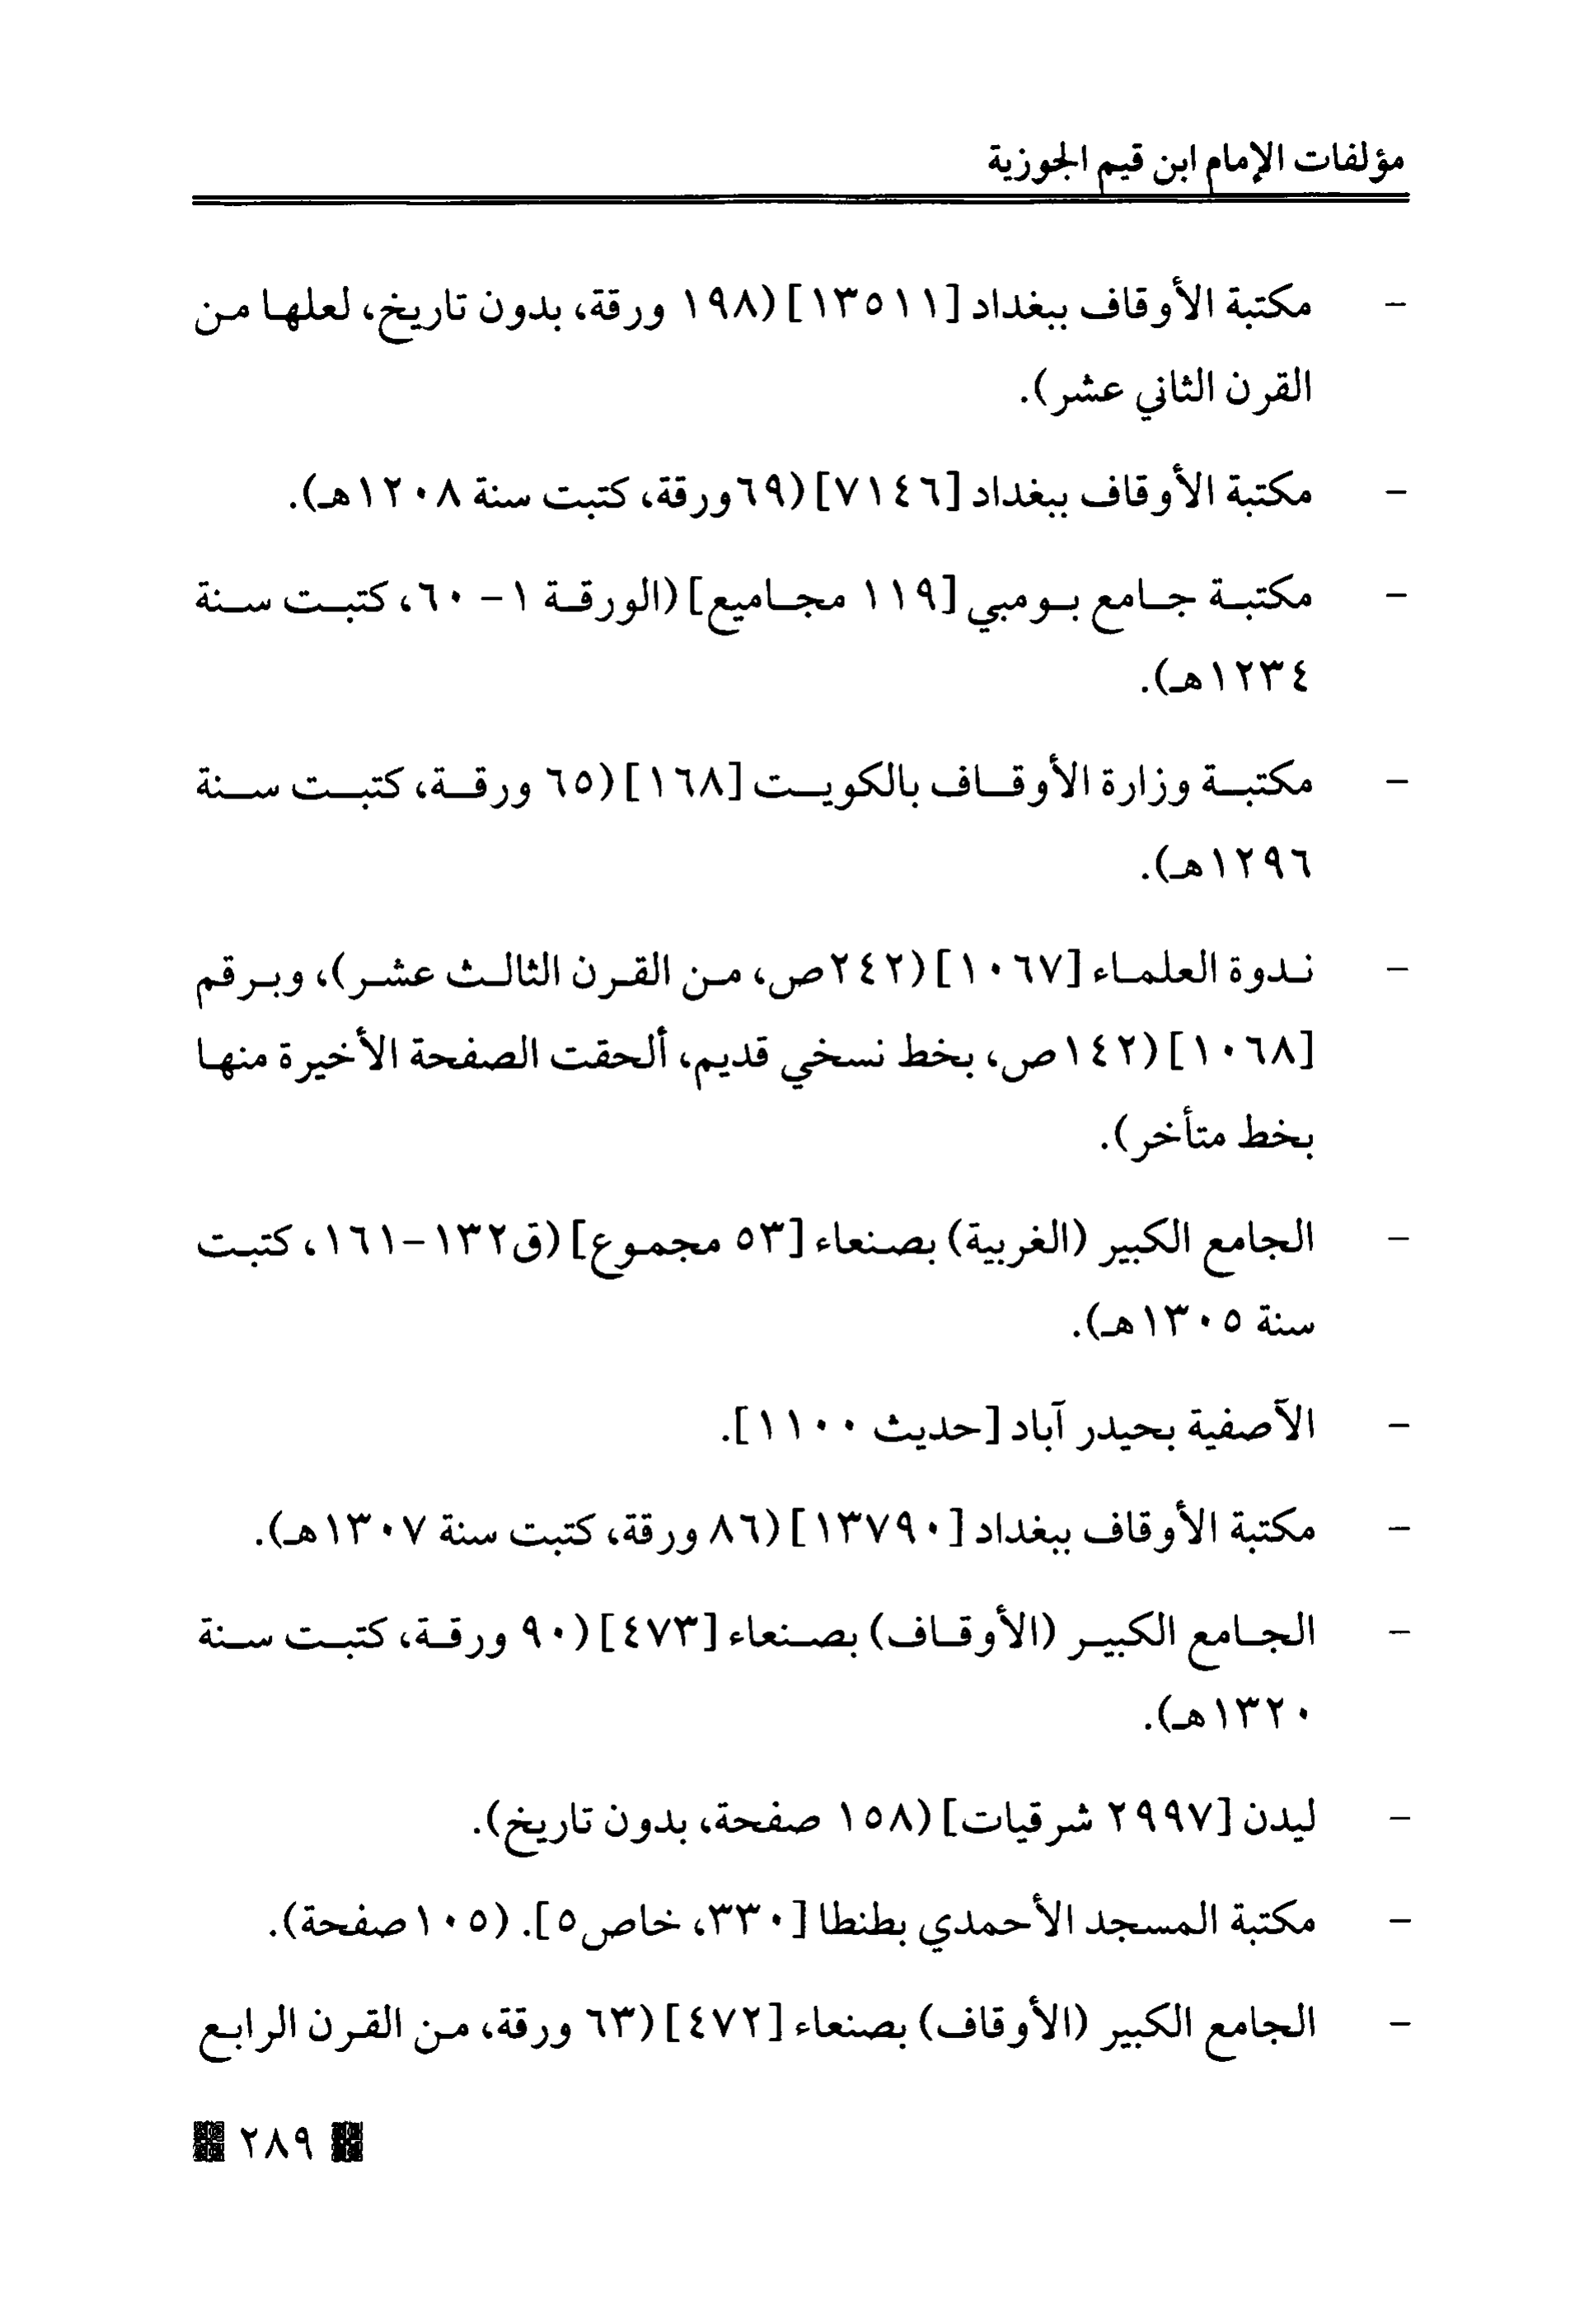 مؤلفات الإمام ابن قيم الجوزية
- مكتبة الأوقاف ببغداد [١٣٥١١] (١٩٨ ورقة، بدون تاريخ، لعلها من
القرن الثاني عشر).
- مكتبة الأوقاف ببغداد [٧١٤٦] (٦٩ورقة، كتبت سنة ١٢٠٨هـ).
- مكتبة جامع بومبي [١١٩ مجاميع] (الورقة ١- ٦٠، كتبت سنة
١٢٣٤هـ).
- مكتبة وزارة الأوقاف بالكويت [١٦٨] (٦٥ ورقة، كتبت سنة
١٢٩٦هـ).
- ندوة العلماء [١٠٦٧] (٢٤٢ص، من القرن الثالث عشر)، وبرقم
[١٠٦٨] (١٤٢ص، بخط نسخي قديم، ألحقت الصفحة الأخيرة منها
بخط متأخر).
- الجامع الكبير (الغربية) بصنعاء [٥٣ مجموع] (ق١٣٢-١٦١، كتبت
سنة ١٣٠٥هـ).
- الآصفية بحيدر آباد [حديث ١١٠٠].
- مكتبة الأوقاف ببغداد [١٣٧٩٠] (٨٦ ورقة، كتبت سنة ١٣٠٧هـ).
- الجامع الكبير (الأوقاف) بصنعاء [٤٧٣] (٩٠ ورقة، كتبت سنة
١٣٢٠هـ).
- ليدن [٢٩٩٧ شرقيات] (١٥٨ صفحة، بدون تاريخ).
- مكتبة المسجد الأحمدي بطنطا [٣٣٠، خاص٥]. (١٠٥صفحة).
- الجامع الكبير (الأوقاف) بصنعاء [٤٧٢] (٦٣ ورقة، من القرن الرابع
٢٨٩